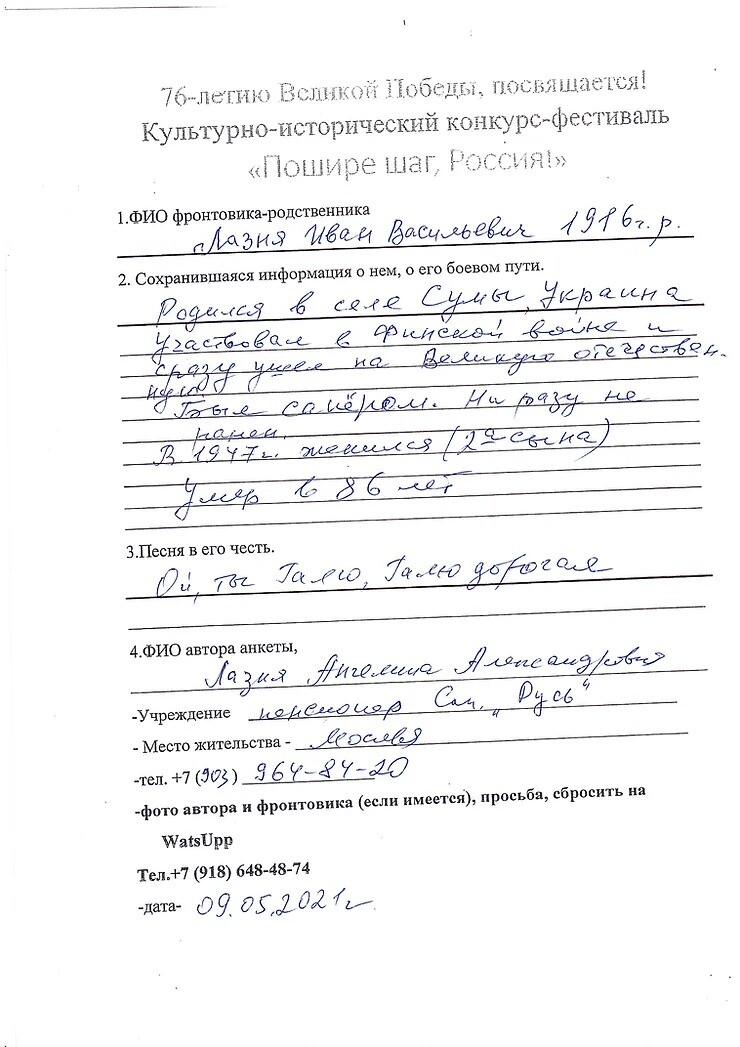 76-летию Великой Победы, посвящается!
Культурно-исторический конкурс-фестиваль
«Пошире шаг, Россия!»
1.ФИО фронтовика-родственника
Лазня Иван Васильевич 1916 г. р.
2. Сохранившаяся информация о нем, о его боевом пути.
Родился в селе Сумы, Украина
Участвовал в Финской войне и
сразу ушел на Великую отечествен.
ную
Был сапёром. Ни разу не
ранен.
В 1947г. женился (2а сына)
Умер в 86 лет
3.Песня в его честь.
Ой, ты Галю, Галю дорогая
4.ФИО автора анкеты,
Лазня Ангелина Александровна
-Учреждение пенсионер Сан. "Русь"
- Место жительства - Москва
-тел. +7 (903) 964-84-20
-фото автора и фронтовика (если имеется), просьба, сбросить на
WatsUpp
Тел.+7 (918) 648-48-74
-дата- 09.05.2021г.